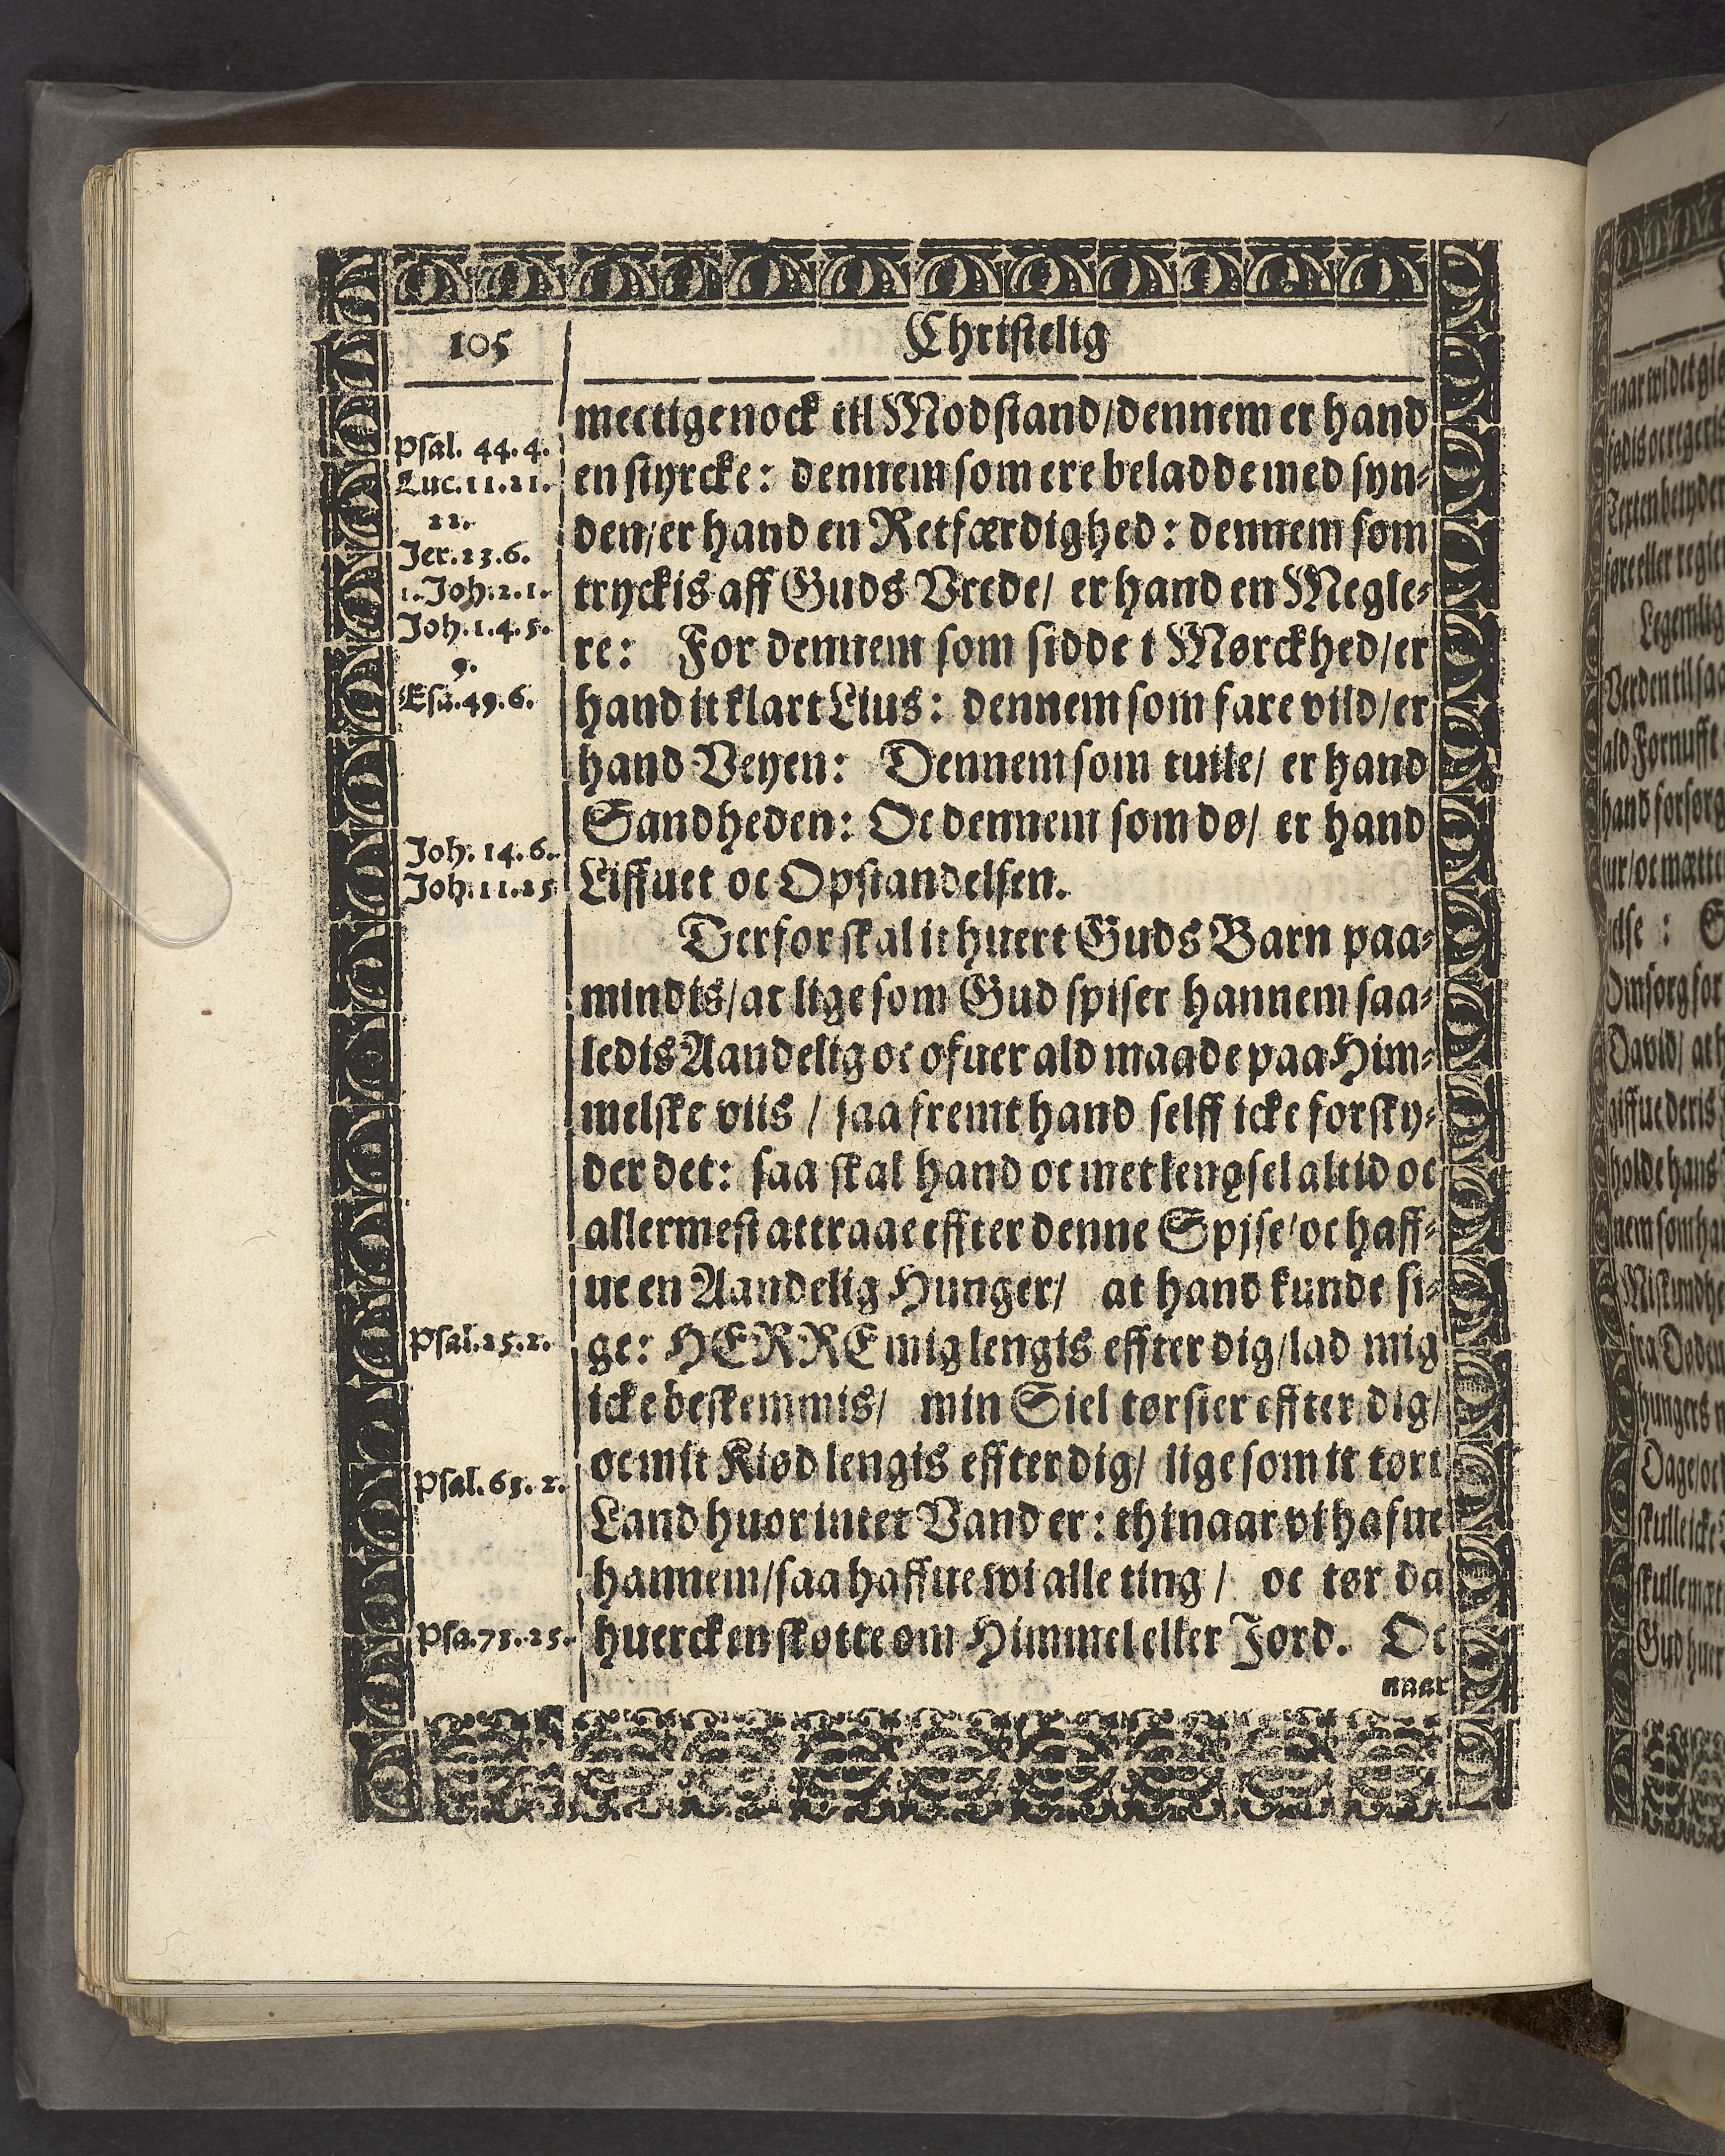 105
Christelig
mectige nock til Modstand/dennem er hand
en styrcke: dennem som ere beladde med syn-
den/er hand en Retfærdighed: dennem som
tryckis aff Guds Vrede/ er hand en Megle-
re: For dennem som sidde i Mørckhed/er
hand it klart Lius: dennem som fare vild/er
hand Veyen: Dennem som tuile/ er hand
Sandheden: Oc dennem som dø/ er hand
Liffuet oc Opstandelsen.
Derfor skal it huert Guds Barn paa-
mindis/at lige som Gud spiser hannem saa-
ledis Aandelig oc ofuer ald maade paa Him-
melske viis / saa fremt hand selff icke forsky-
der det: saa skal hand oc met lengsel altid oc
allermest attraae effter denne Spjse/oc haff-
ue en Aandelig Hunger/ at hand kunde si-
ge: HERRE mig lengis effter dig/lad mig
icke beskemmis/ min Siel tørster effter dig/
oc mit Kiød lengis effter dig/ lige som it tørt
Land huor intet Vand er: thi naar vi hafue
hannem/saa haffue wi alle ting / oc tør da
huercken skøtte om Himmel eller Jord. Oc
naar
Psal. 44. 4.
Luc. 11. 21.
22.
Jer. 23. 6.
1. Joh. 2. 1.
Joh. 1. 4. 5.
9.
Esa. 49. 6.
Joh. 14. 6.
Joh. 11. 25
Psal. 25. 2.
Psal. 63. 2.
Psa. 73. 25.